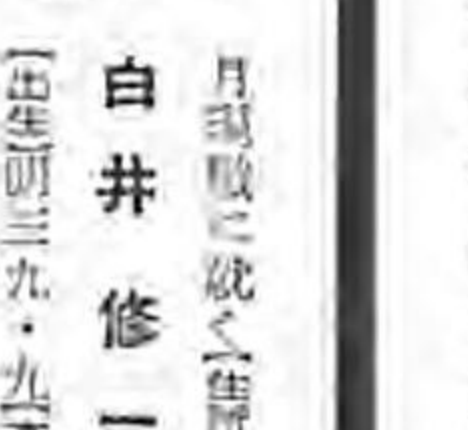 月現職に就く【住所
白井修一
【出生】明三九・九【本